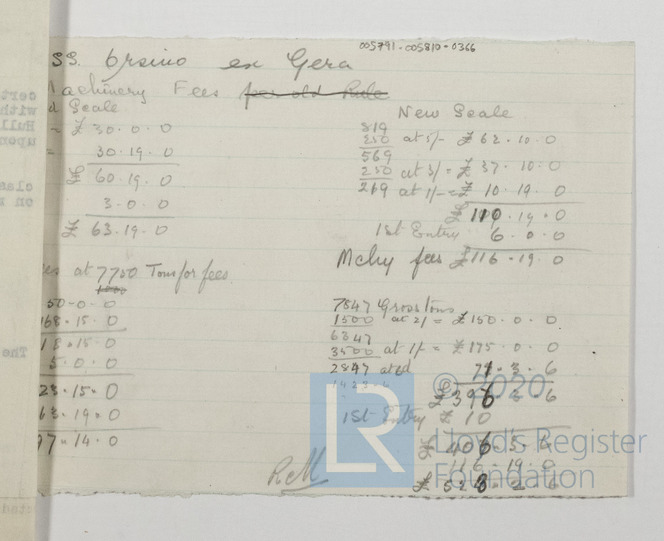 005791-005810-0366
SS. Orsino ex Gera
Machinery Fees per old Rule
d Scale
= £ 30.0.0
= 30.19.0
£ 60.19.0
3.0.0
£ 63.19.0
es at 7750 Tons for fees.
50-0-0
168.15.0
18.15.0
5.0.0
23.15.0
63.19.0
97.14.0
New Scale
819
250 at 5/- £ 62.10.0
569
250 at 3/- = £ 37.10.0
269 at 1/- = £ 10.19.0
£ 110.19.0
1st Entry 6.0.0
Mchy fees £116.19.0
7847 Gross tons
1500 at 2/- = £150.0.0
6347
3500 at 1/- = £175.0.0
2847 at 6d 71.3.6
£396.3.6
1st Entry £ 10
£ 406.3.6
116.19.0
£ 523.2.6
RCM
LR
© 2020
Lloyds Register
Foundation
cert
with
Hull
upon
clas
on
The